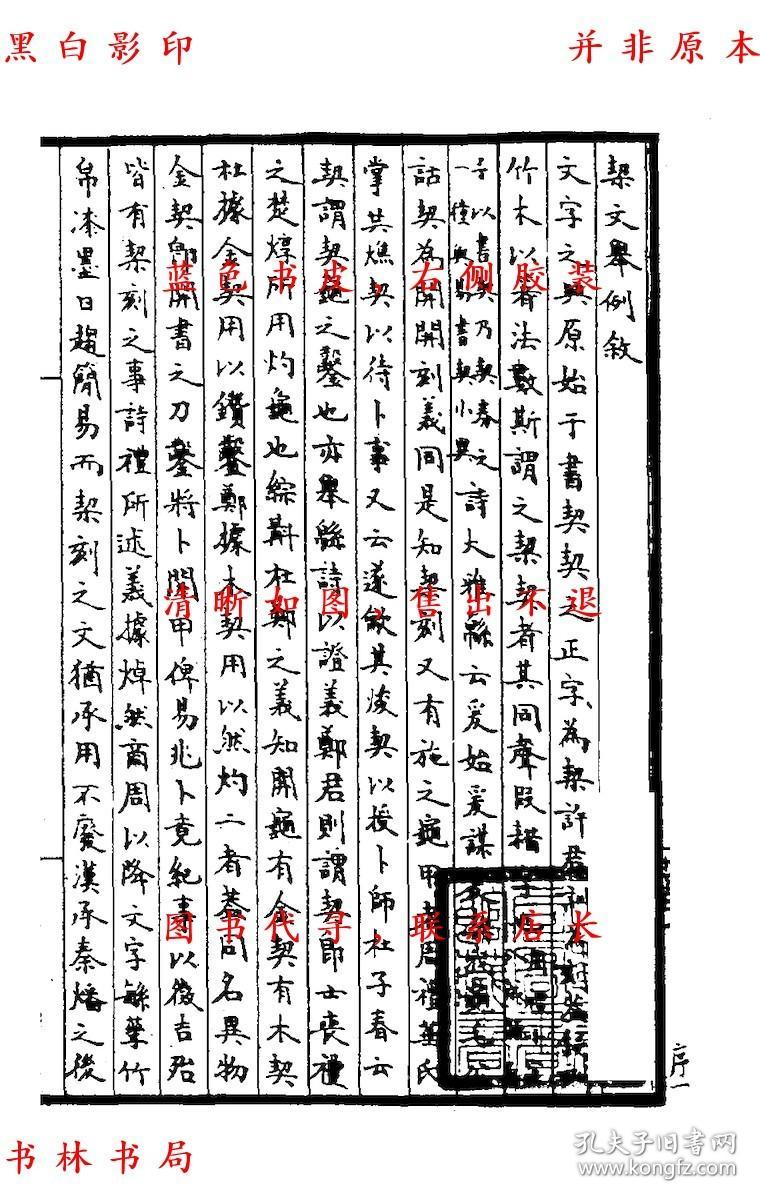 黑白影印
并非原本
栔文舉例敘
文字之興原始于書契契之正字為栔許君訓為
竹木以箸法數斯謂之栔契者其同聲叚耤字
詩大雅緜云爰始爰謀
詁契為開開刻義同是知栔刻又有施之龜甲者周禮菙氏
掌共燋契以待卜事又云遂龡其焌契以授卜師杜子春云
契謂契龜之鑿也亦舉緜詩以證義鄭君則謂契即士喪禮
之楚焞所用灼龜也綜斠杜鄭之義知開龜有金契有木契
杜據金契用以鑽鑿鄭據木契用以然灼二者蓋同名異物
金契即開書之刀鑿將卜開甲俾易兆卜竟紀事以徵吉殆
皆有栔刻之事詩禮所述義據焯然商周以降文字緐孳竹
帛漆墨日趨簡易而栔刻之文猶承用不廢漢承秦燔之後
序一
蓝色书皮,右侧胶装
清晰如图,售出不退
图书代寻,联系店长
书林书局
孔夫子旧书网
www.kongfz.com